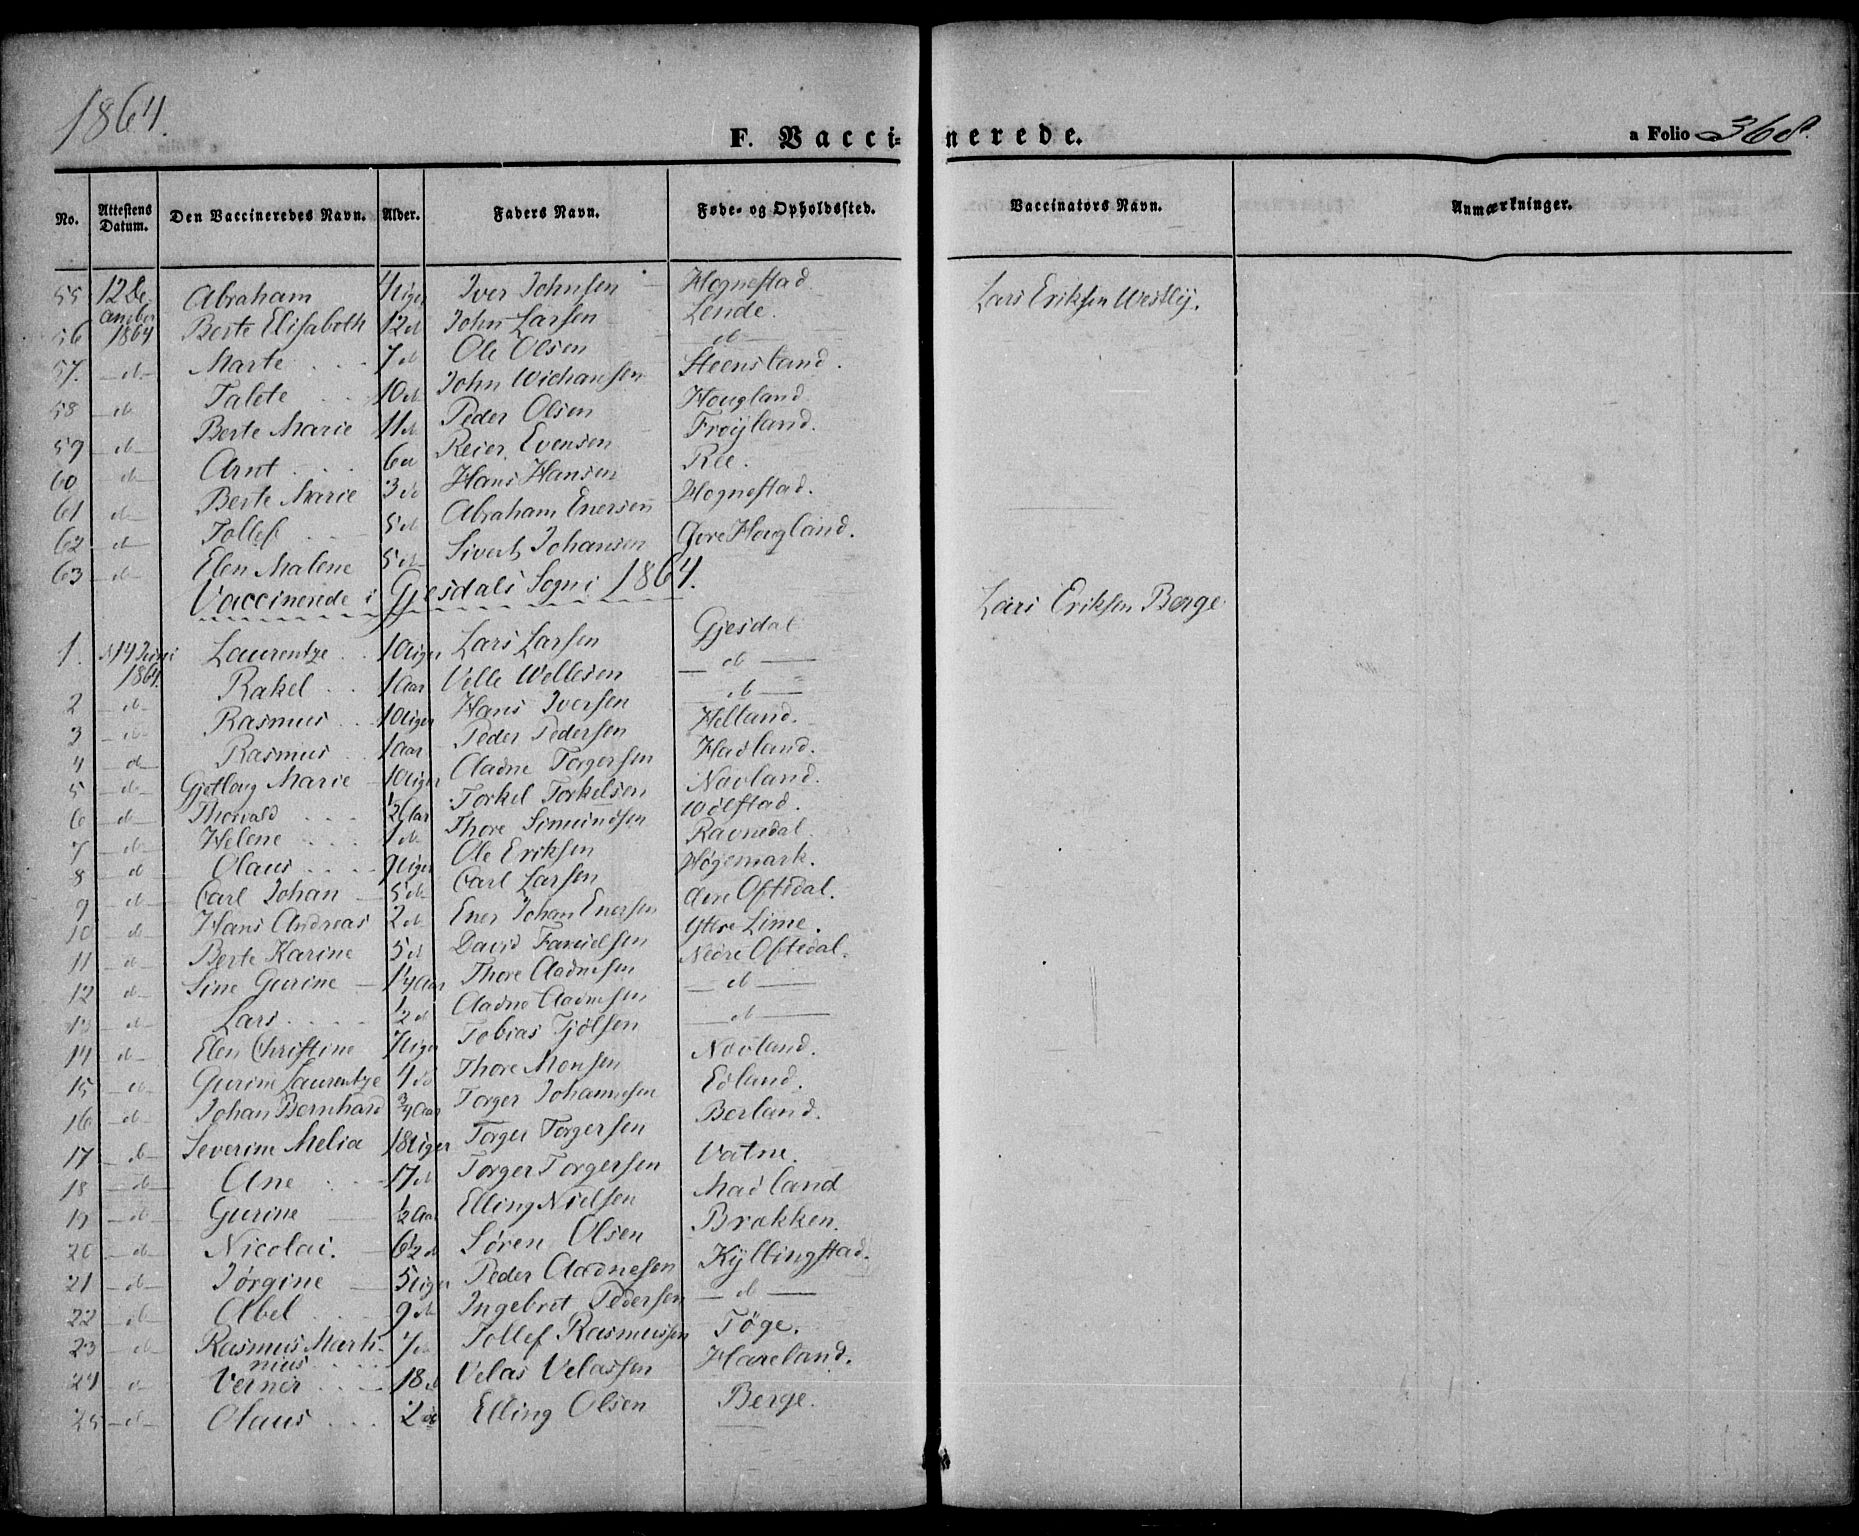 1864.
F. Vaccinerede.
a Folio 368.
No. Attestens Datum. Den Vaccineredes Navn. Alder. Faders Navn. Føde- og Opholdssted. Vaccinators Navn. Anmærkninger.
55 12 De Abraham 4 Uger Iver Johnsen Hognestad Lars Eriksen Westlÿ.
56 1864 Berte Elisabeth 12 d John Larsen Lende.
57. d Marte 7 d Ole Olsen d
58 d Talete 10 d John Wichansen Steensland.
59 d Berte Marie 11 d Peder Olsen Hougland
60 d Arnt 6 d Reier Evensen Frøÿland.
61 d Berte Marie 3 d Hans Hansen Ree.
62 d Tollef 5 d Abraham Enersen Hognestad.
63 d Elen Malene 5 d Sivert Johansen Øvre Hougland.
Vaccinerede i Gjesdals Sogn i 1864. Lars Eriksen Berge
1. 14 Juni 1864. Laurentze 10 Uger Lars Larsen Gjesdal
2 d Rakel 1 Aar Velle Wellesen d
3 d Rasmus 10 Uger Hans Iversen d
4 d Rasmus 1 Aar Peder Pedersen Helland.
5 d Gjetloug Marie 10 Uger Aadne Torgersen Hadland.
6 d Thorvald 1/2 Aar Torkel Torkelsen Navland.
7 d Helene 1 d Thore Simundsen Ølfstad.
8 d Olaus 9 Uger Ole Eriksen Ravnedal.
9 d Carl Johan 5 d Carl Larsen Høgemark.
10 d Hans Andreas 2 d Ener Johan Enersen Øvre Oftedal.
11 d Berte Karine 5 d David Fanuelsen Ytre Lime.
12 d Sine Gurine 1 1/4 Aar Thore Aadnesen Nedre Oftedal.
13 d Lars 1/2 d Aadne Aadnesen d
14 d Elen Christine 7 Uger Tobias Tjølsen d
15 d Gurine Laurentze 4 d Thore Monsen Navland.
16 d Johan Bernhard 3/4 Aar Torger Johannesen Edland.
17 d Severine Melia 18 Uger Torger Torgersen Berland.
18 d Ane 17 d Torger Torgersen Vatne.
19 d Gurine 1/2 Aar Elling Nielsen Madland
20 d Nicolai. 6 1/2 d Søren Olsen Brækken.
21 d Jørgine 5 Uger Peder Aadnesen Kÿllingstad.
22 d Abel 9 d Ingebret Pedersen d
23 d Rasmus Martinius 7 d Tollef Rasmussen Tøge.
24 d Verner 18 d Velas Velassen Haveland.
25 d Olaus 2 d Elling Olsen Berge.